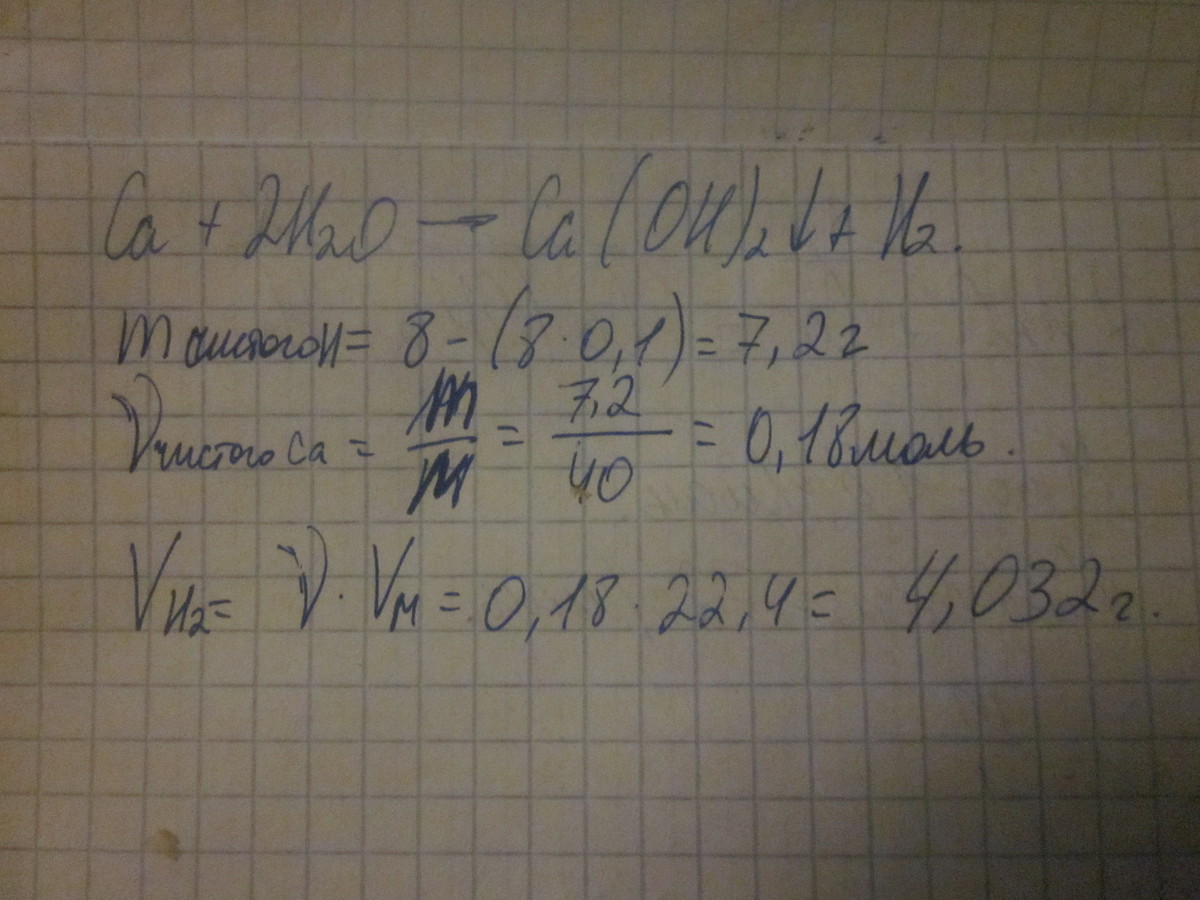 Ca + 2H₂O → Ca(OH)₂↓ + H₂.
m чистого = 8 - (8 · 0,1) = 7,2 г
ν чистого Ca = m/M = 7,2/40 = 0,18 моль.
V H₂ = ν · Vм = 0,18 · 22,4 = 4,032 г.